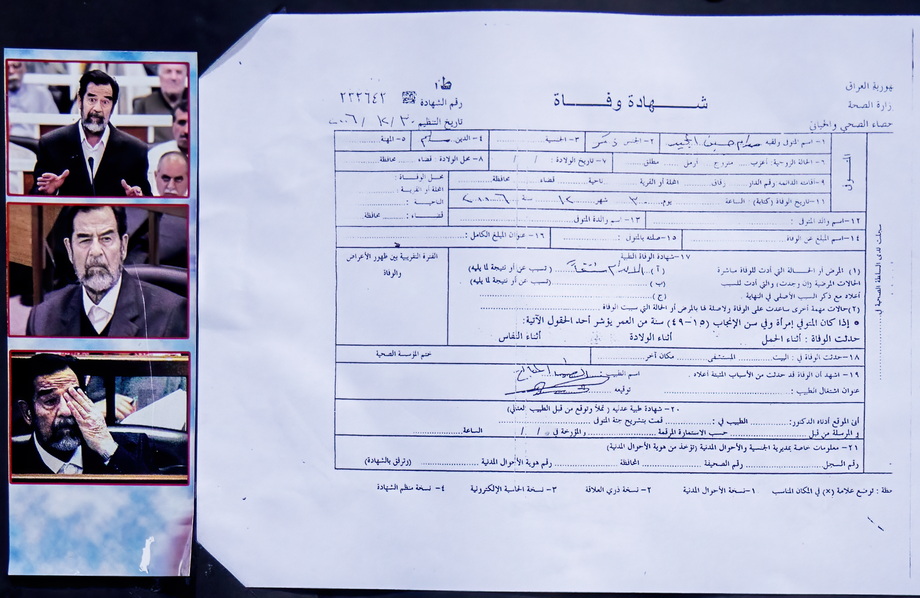 مهورية العراق
زارة الصحة
حصاء الصحي والحياتي
شــهــادة وفــاة
ط١
رقم الشهادة ٢٢٢٦٤٢
تاريخ التنظيم ٣٠/١٢/٢٠٠٦
المتوفى
١- اسم المتوفى ولقبه صدام حسين المجيد ٢- الجنس ذكر ٣- الجنسية ٤- الدين ٥- المهنة
٦- الحالة الزوجية: أعزب متزوج أرمل مطلق ٧- تاريخ الولادة: / / ٨- محل الولادة: قضاء محافظة
٩- اقامته الدائمة: رقم الدار زقاق المحلة أو القرية ناحية قضاء محافظة
محل الوفاة:
المحلة أو القرية:
١١- تاريخ الوفاة (كتابة): الساعة يوم ٣٠ شهر ١٢ سنة ٢٠٠٦
الناحية:
قضاء: محافظة:
١٢- اسم والد المتوفى: ١٣- اسم والدة المتوفى
١٤- اسم المبلغ عن الوفاة ١٥- صلته بالمتوفى: ١٦- عنوان المبلغ الكامل:
١٧- شهادة الوفاة الطبية
الفترة التقريبية بين ظهور الأعراض والوفاة
(١) المرض أو الحالة التي أدت للوفاة مباشرة (أ) (تسبب عن أو نتيجة لما يليه)
الحالات المرضية (إن وجدت) والتي أدت للسبب (ب) (تسبب عن أو نتيجة لما يليه)
أعلاه مع ذكر السبب الأصلي في النهاية (ج)
(٢) حالات مهمة أخرى ساعدت على الوفاة ولاصلة لها بالمرض أو الحالة التي سببت الوفاة
٥ إذا كان المتوفي إمرأة وفي سن الإنجاب (١٥-٤٩) سنة من العمر يؤشر أحد الحقول الآتية:
حدثت الوفاة: أثناء الحمل أثناء الولادة أثناء النفاس
١٨- حدثت الوفاة في: البيت المستشفى مكان آخر
ختم المؤسسة الصحية
١٩- اشهد أن الوفاة قد حدثت من الأسباب المثبتة أعلاه. اسم الطبيب
عنوان اشتغال الطبيب: توقيعه
٢٠- شهادة طبية عدلية (تملأ وتوقع من قبل الطبيب العدلي)
أني الموقع أدناه الدكتور: الطبيب في: قمت بتشريح جثة المتوفى
و المرسلة من قبل حسب الاستمارة المرقمة والمؤرخة في / / الساعة
٢١- معلومات خاصة بمديرية الجنسية والأحوال المدنية (تؤخذ من هوية الأحوال المدنية)
رقم السجل رقم الصحيفة المحافظة رقم هوية الأحوال المدنية (وترفق بالشهادة)
حظة: توضع علامة (×) في المكان المناسب ١- نسخة الأحوال المدنية ٢- نسخة ذوي العلاقة ٣- نسخة الحاسبة الإلكترونية ٤- نسخة منظم الشهادة